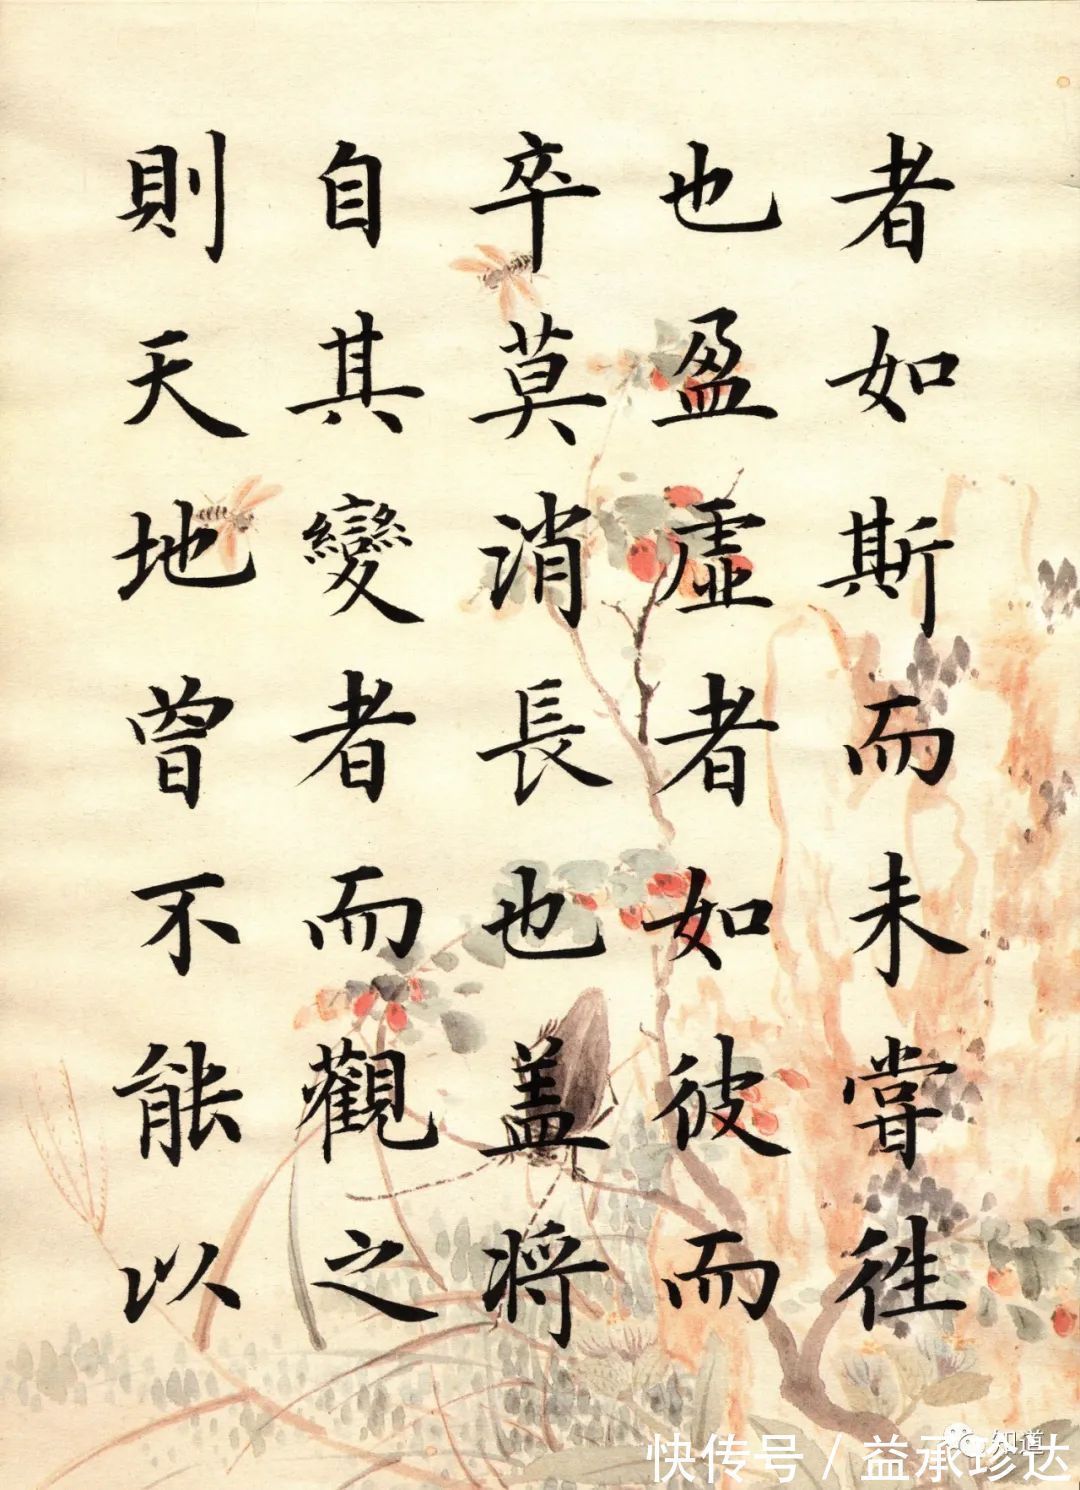 者如斯而未嘗往
也盈虛者如彼而
卒莫消長也盖将
自其變者而觀之
則天地曾不能以
知道
快传号 / 益承珍达